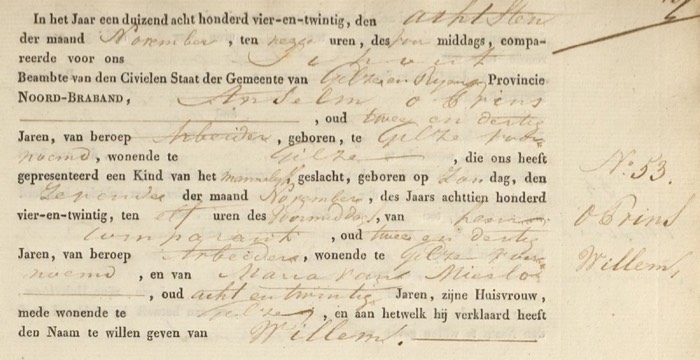 In het Jaar een duizend acht honderd vier-en-twintig, den achtsten
der maand November, ten negen uren, des voor middags, compa-
reerde voor ons
Beambte van den Civielen Staat der Gemeente van Gilze en Rijen Provincie
NOORD-BRABAND, Anselm o Prins
, oud twee en dertig
Jaren, van beroep Arbeider, geboren, te Gilze voor-
noemd, wonende te Gilze, die ons heeft
gepresenteerd een Kind van het mannelijk geslacht, geboren op Zon dag, den
Zevende der maand November, des Jaars achttien honderd
vier-en-twintig, ten elf uren des Voormiddags, van
comparant, oud twee en dertig
Jaren, van beroep Arbeider, wonende te Gilze voor-
noemd, en van Maria van Mierlo
, oud acht en twintig Jaren, zijne Huisvrouw,
mede wonende te Gilze, en aan hetwelk hij verklaard heeft
den Naam te willen geven van Willem.
No. 53.
o Prins
Willem